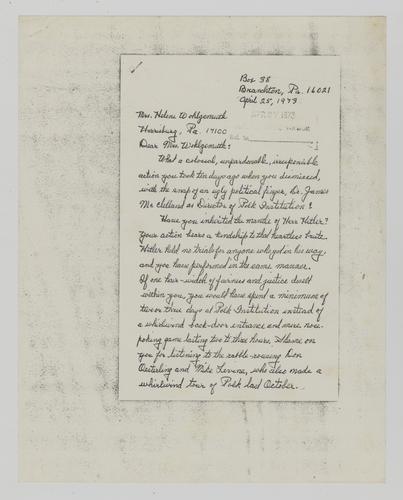 Box 38
Branchton, Pa. 16021
April 25, 1973
Mrs. Helene Wohlgemuth
Harrisburg, Pa. 17100
Dear Mrs. Wohlgemuth:
What a colossal, unpardonable, irresponsible
action you took ten days ago when you dismissed,
with the snap of an ugly political finger, Dr. James
McClelland as Director of Polk Institution!
Have you inherited the mantle of Herr Hitler?
Your action bears a kindship to that heartless brute.
Hitler held no trials for anyone who got in his way,
and you have performed in the same manner.
If one hair-width of fairness and justice dwelt
within you, you would have spent a minimum of
two or three days at Polk Institution instead of
a whirlwind back-door entrance and mere nose-
poking game lasting two to three hours. Shame on
you for listening to the rabble-rousing
and Mike Levine, who also made a
whirlwind tour of Polk last October.